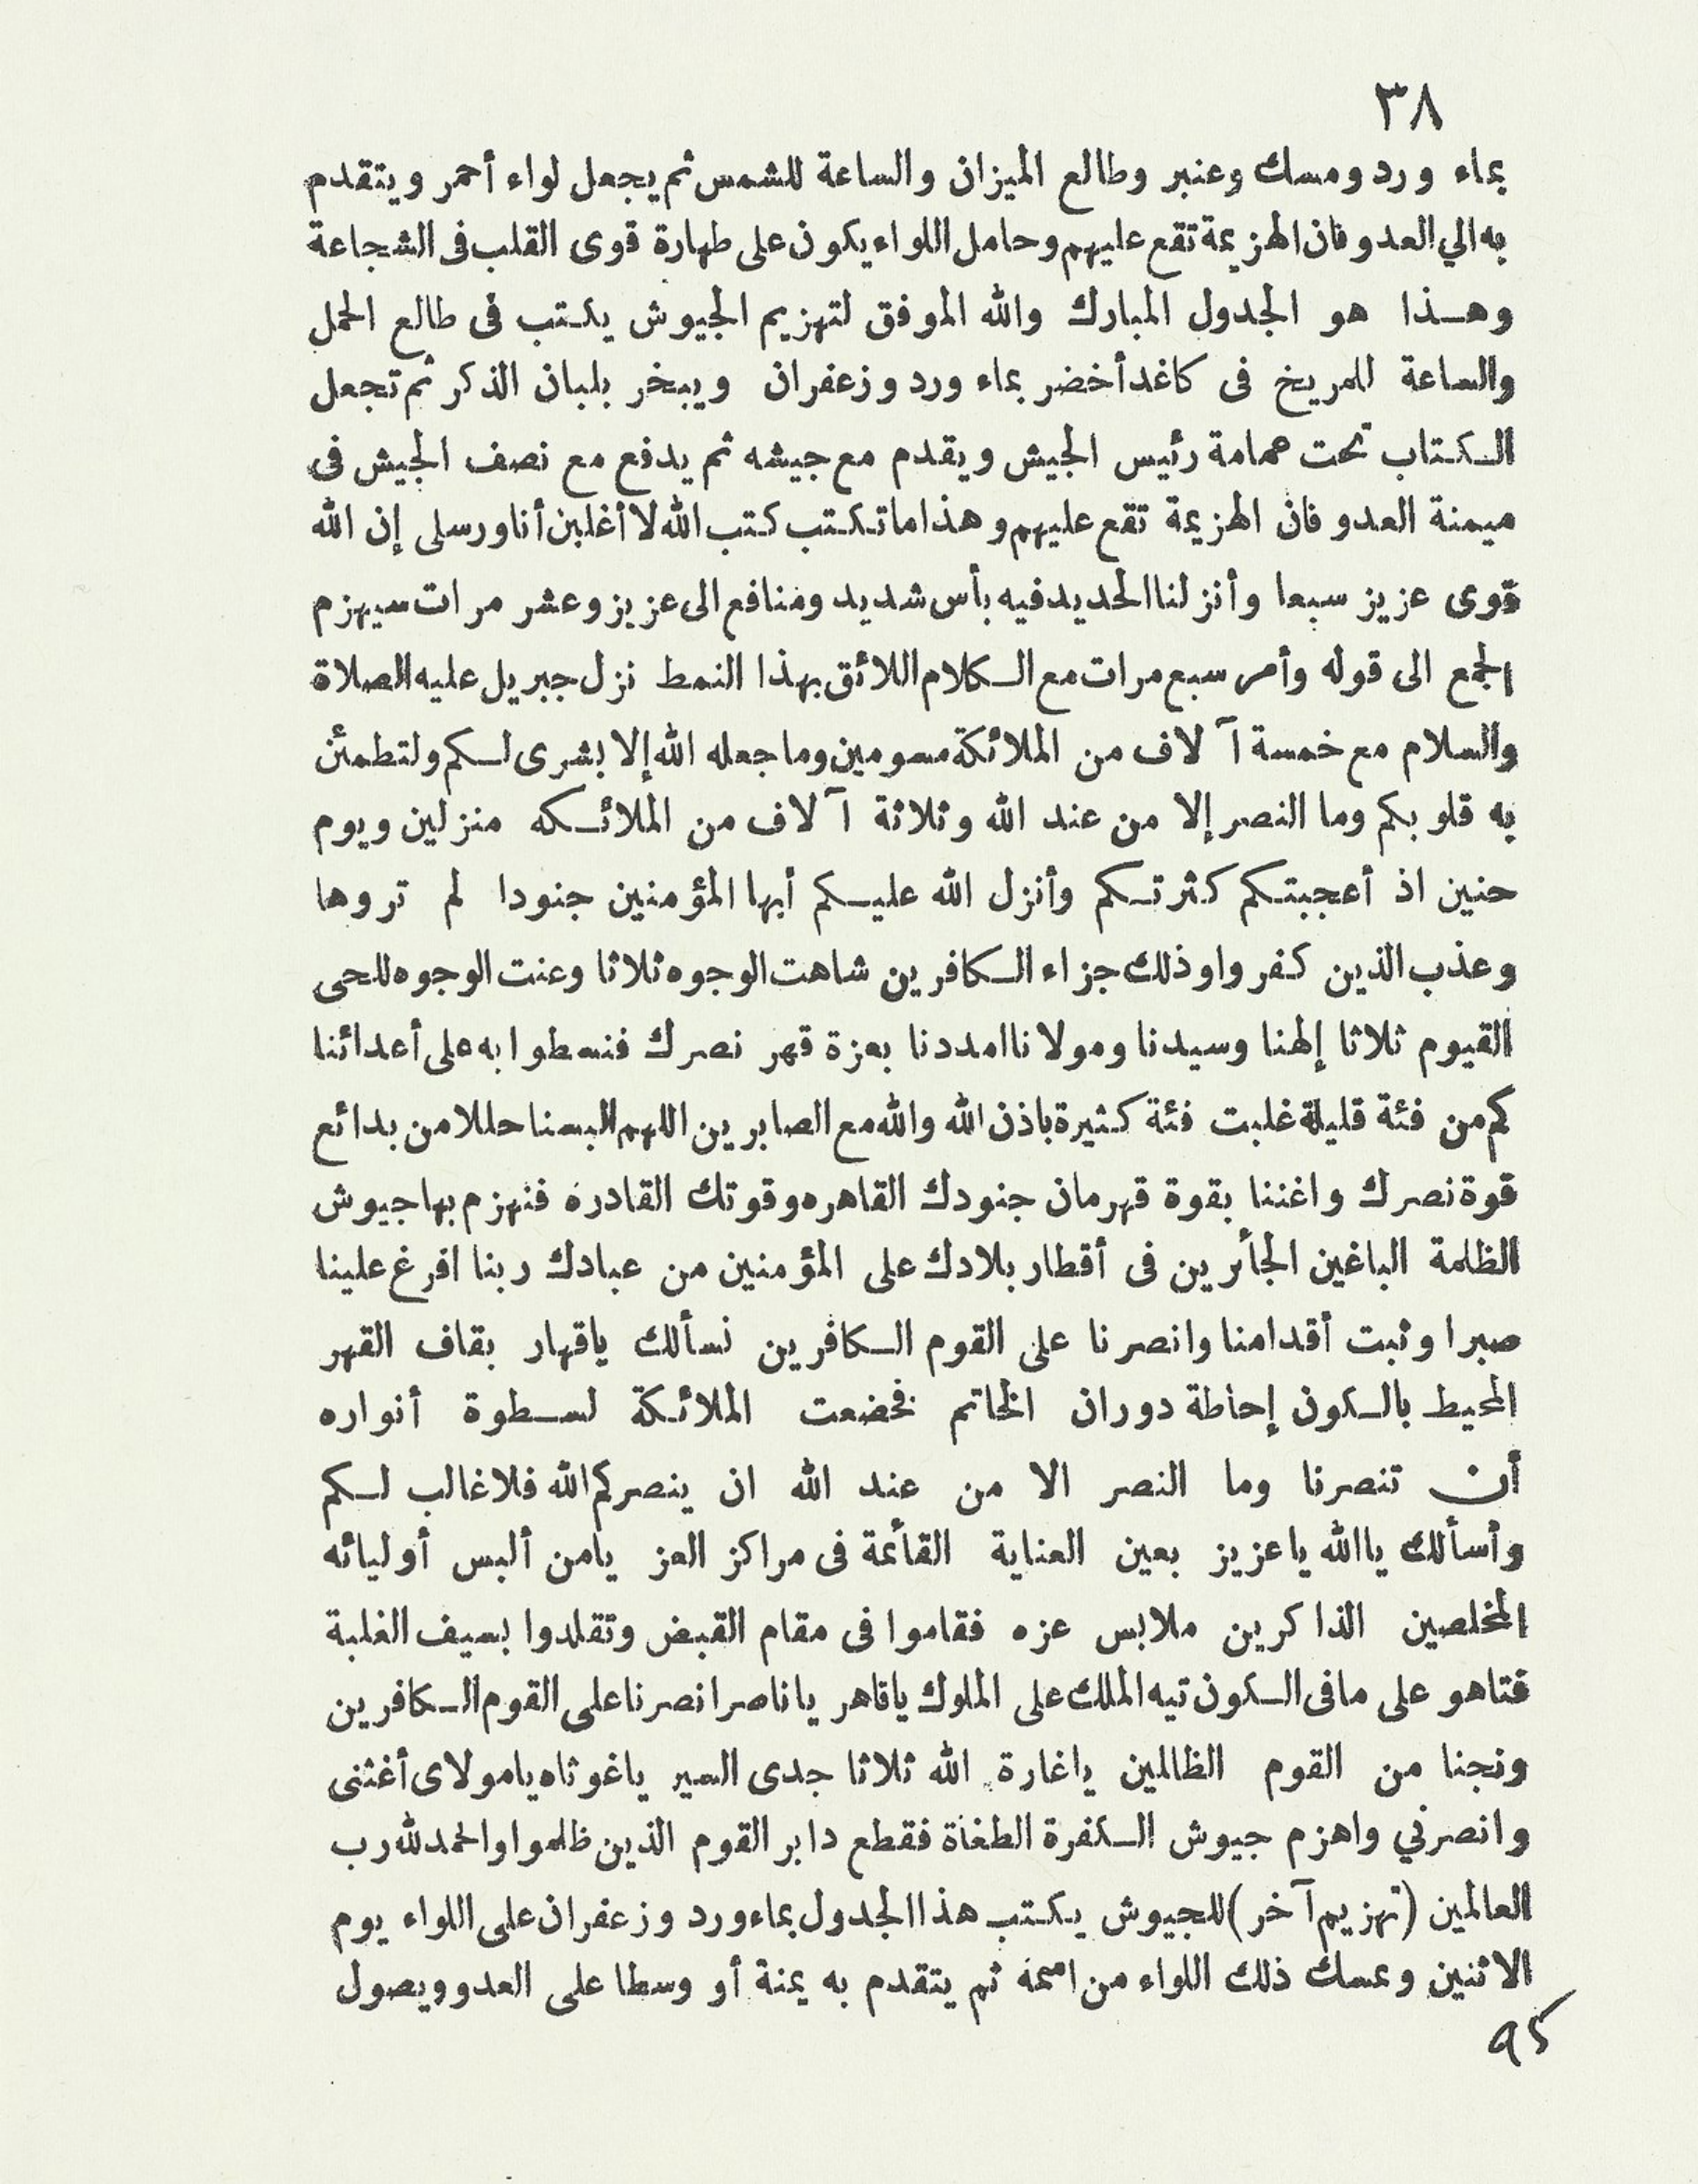 ٣٨
بماء ورد ومسك وعنبر وطالع الميزان والساعة للشمس ثم يجعل لواء أحمر ويتقدم
به الي العدو فان الهزيمة تقع عليهم وحامل اللواء يكون على طهارة قوى القلب فى الشجاعة
وهـذا هو الجدول المبارك والله الموفق لتهزيم الجيوش يكتب فى طالع الحمل
والساعة للمريخ فى كاغد أخضر بماء ورد وزعفران ويبخر بلبان الذكر ثم تجعل
الـكـتاب تحت عمامة رئيس الجيش ويقدم مع جيشه ثم يدفع مع نصف الجيش فى
ميمنة العدو فان الهزيمة تقع عليهم وهذا ما تكتب كتب الله لا أغلبن أنا ورسلى إن الله
قوى عزيز سبعا وأنزلنا الحديد فيه بأس شديد ومنافع الى عزيز وعشر مرات سيهزم
الجمع الى قوله وأمر سبع مرات مع الـكلام اللائق بهذا النمط نزل جبريل عليه الصلاة
والسلام مع خمسة آلاف من الملائكة مسومين وما جعله الله إلا بشرى لـكم ولتطمئن
به قلوبكم وما النصر إلا من عند الله وثلاثة آلاف من الملائـكه منزلين ويوم
حنين اذ أعجبتـكم كثرتـكم وأنزل الله عليـكم أيها المؤمنين جنودا لم تروها
وعذب الذين كفروا وذلك جزاء الـكافرين شاهت الوجوه ثلاثا وعنت الوجوه للحى
القيوم ثلاثا إلهنا وسيدنا ومولانا امددنا بعزة قهر نصرك فنسطوا به على أعدائنا
كم من فئة قليلة غلبت فئة كثيرة باذن الله والله مع الصابرين اللهم البسنا حللا من بدائع
قوة نصرك واغننا بقوة قهرمان جنودك القاهره وقوتك القادره فنهزم بها جيوش
الظلمة الباغين الجأرين فى أقطار بلادك على المؤمنين من عبادك ربنا افرغ علينا
صبرا وثبت أقدامنا وانصرنا على القوم الـكافرين نسألك ياقهار بقاف القهر
المحيط بالـكون إحاطة دوران الخاتم فخضعت الملائـكة لسـطوة أنواره
أن تنصرنا وما النصر الا من عند الله ان ينصركم الله فلا غالب لـكم
وأسألك ياالله ياعزيز بعين العناية القأمة فى مراكز العز يامن ألبس أوليائه
المخلصين الذاكرين ملابس عزه فقاموا فى مقام القبض وتقلدوا بسيف الغلبة
فتاهو على مافى الـكون تيه الملك على الملوك ياقاهر ياناصر انصرنا على القوم الـكافرين
ونجنا من القوم الظالمين ياغارة الله ثلاثا جدى السير ياغوثاه يامولاى أغثنى
وانصرني واهزم جيوش الـكفرة الطغاة فقطع دابر القوم الذين ظلموا والحمد لله رب
العالمين (تهزيم آخر) للجيوش يكتب هذا الجدول بماء ورد وزعفران على اللواء يوم
الاثنين وعسك ذلك اللواء من اسمه ثم يتقدم به يمنة أو وسطا على العدو ويصول
٩٥